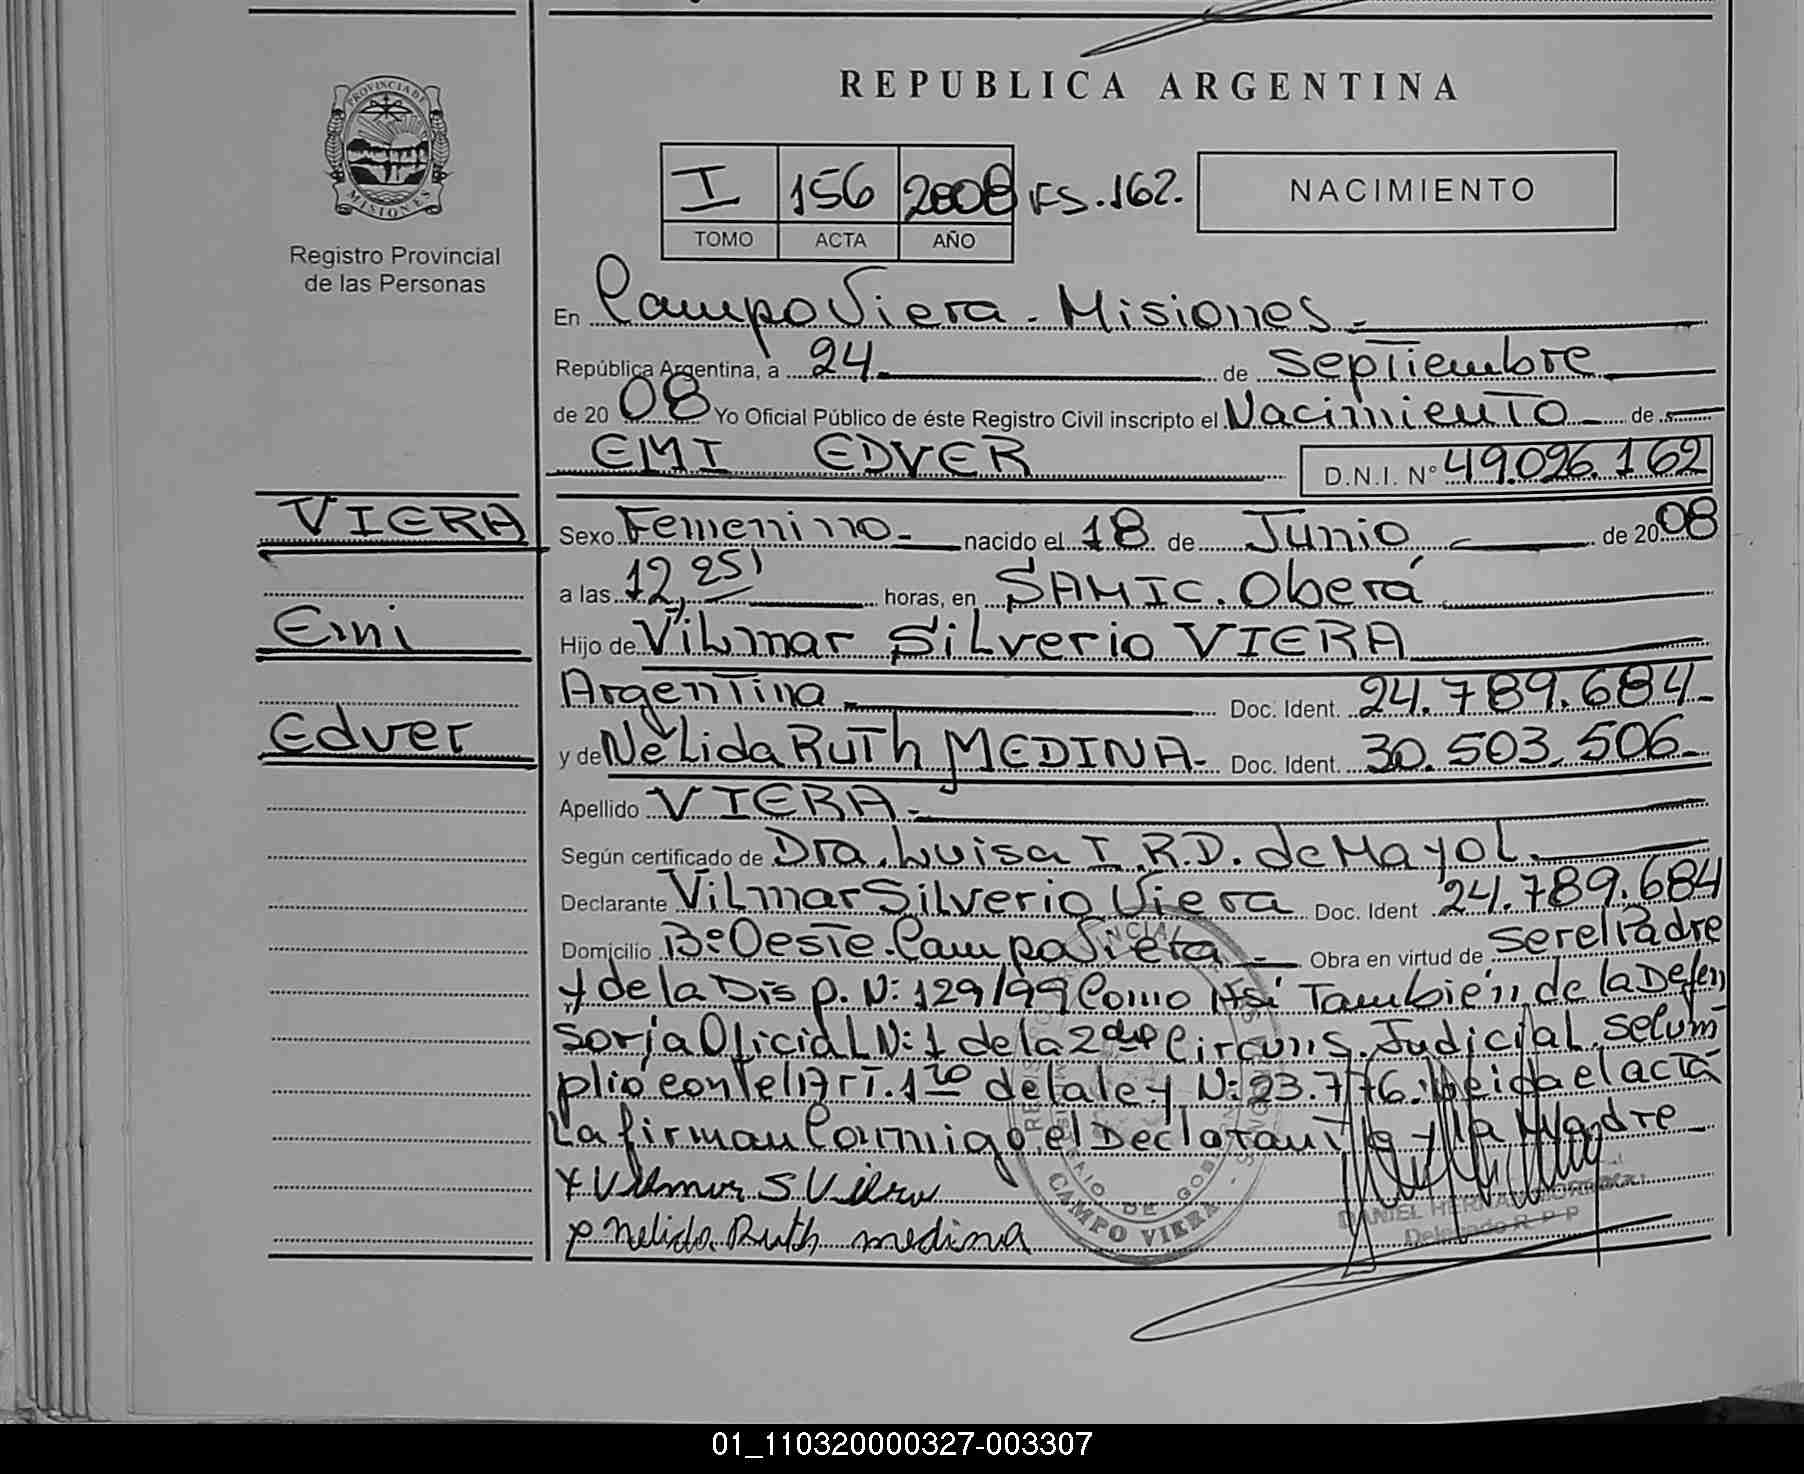 REPUBLICA ARGENTINA
PROVINCIA DE MISIONES
Registro Provincial
de las Personas
I 156 2008 FS.162.
TOMO ACTA AÑO
NACIMIENTO
En Campo Viera - Misiones -
República Argentina, a 24 de Septiembre
de 2008 Yo Oficial Público de éste Registro Civil inscripto el Nacimiento de
EMI EDVER D.N.I. Nº 49.096.162
VIERA
Emi
Edver
Sexo Femenino - nacido el 18 de Junio de 2008
a las 12,25' horas, en SAMIC. Oberá
Hijo de Vilmar Silverio VIERA
Argentina Doc. Ident. 24.789.684-
y de Nélida Ruth MEDINA- Doc. Ident. 30.503.506-
Apellido VIERA-
Según certificado de Dra. Luisa I. R.D. de Mayol.
Declarante Vilmar Silverio Viera Doc. Ident 24.789.684
Domicilio Bº Oeste. Campo Viera - Obra en virtud de ser el Padre
y de la Disp. N: 129/99 Como Así También de la Defen
soria Oficial N: 1 de la 2da Circuns. Judicial. Se cum
plió con el Art. 1ro de la ley N: 23.776. Leida el acta
La firman Conmigo el Declarante y la Madre
x Vilmar S Viera
x Nelida Ruth medina
CAMPO VIERA
DANIEL HERNAN
Delegado R. P. P
01_110320000327-003307